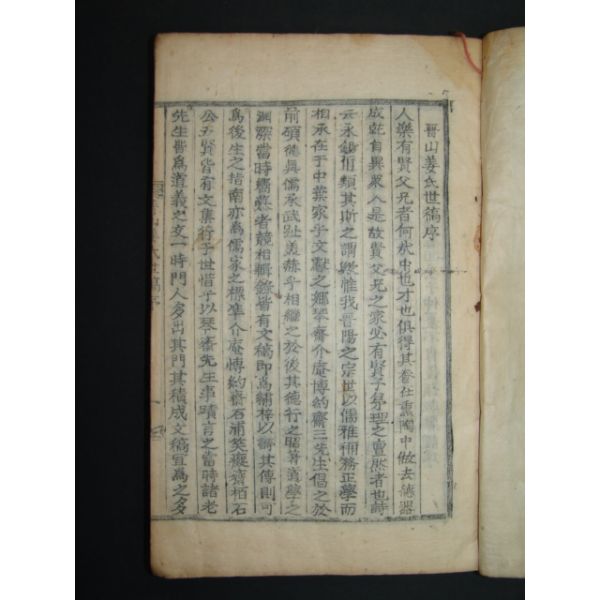 晋山姜氏世稿序
人樂有賢父兄者何水中也才也俱得其養仕熏陶中做去德器
成就自異衆人是故賢父兄之家必有賢子弟理之實然者也詩
云永錫爾類其斯之謂歟惟我晋陽之宗世以儒雅相務正學而
相承在于中葉家乎文獻之鄕琴齋介庵博約齋三先生倡之於
前碩德眞儒承武趾美赫乎相繼之於後其德行之昭著道學之
淵深當時裔獻者競相輯錄皆有文稿即爲繡梓以壽其傳則可
爲後生之指南亦爲儒家之標準介庵博約齋石浦笑癡齋栢石
公五賢皆有文集行于世惜乎以琴齋先生事蹟言之當時諸老
先生皆爲道義之交一時門人多出其門其積成文稿宜爲之多